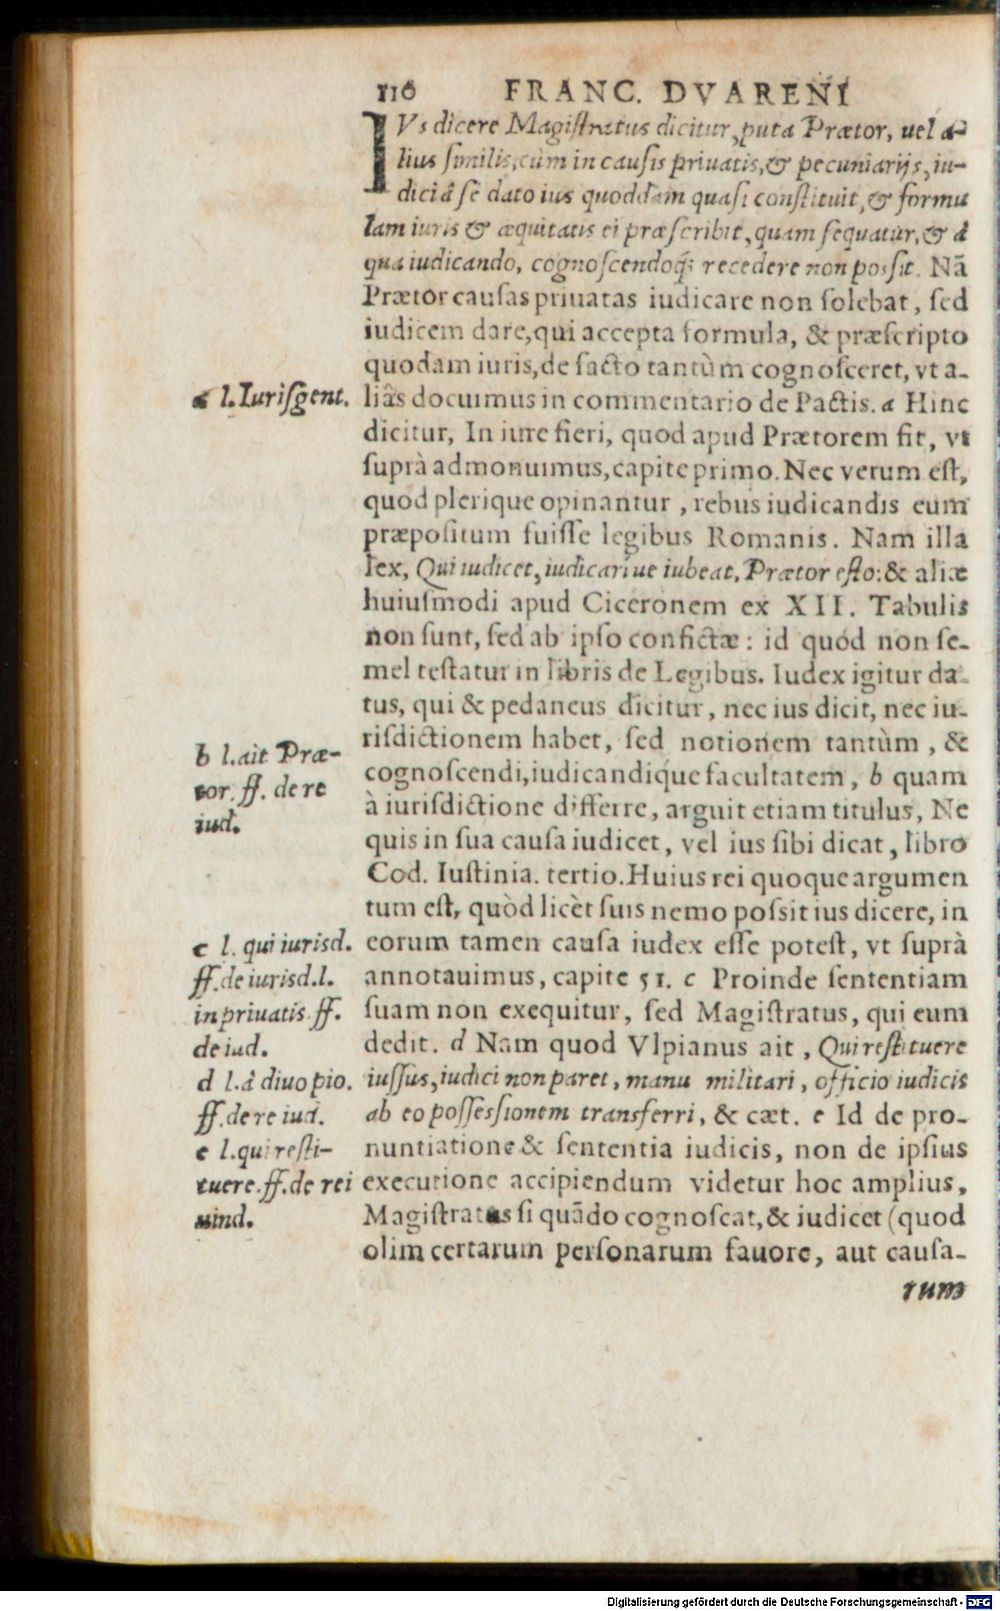 116 FRANC. DVARENI
IVs dicere Magistratus dicitur, puta Prætor, uel a-
lius similis, cùm in causis priuatis, & pecuniarijs, iu-
dici â se dato ius quoddam quasi constituit, & formu
lam iuris & æquitatis ei præscribit, quam sequatur, & â
qua iudicando, cognoscendoq; recedere non possit. Nã
Prætor causas priuatas iudicare non solebat, sed
iudicem dare, qui accepta formula, & præscripto
quodam iuris, de facto tantùm cognosceret, vt a-
liâs docuimus in commentario de Pactis. a Hinc
dicitur, In iure fieri, quod apud Prætorem fit, vt
suprà admonuimus, capite primo. Nec verum est,
quod plerique opinantur, rebus iudicandis eum
præpositum fuisse legibus Romanis. Nam illa
lex, Qui iudicet, iudicariue iubeat, Prætor esto: & aliæ
huiusmodi apud Ciceronem ex XII. Tabulis
non sunt, sed ab ipso confictæ: id quód non se-
mel testatur in libris de Legibus. Iudex igitur da-
tus, qui & pedaneus dicitur, nec ius dicit, nec iu-
risdictionem habet, sed notionem tantùm, &
cognoscendi, iudicandíque facultatem, b quam
à iurisdictione differre, arguit etiam titulus, Ne
quis in sua causa iudicet, vel ius sibi dicat, libro
Cod. Iustinia. tertio. Huius rei quoque argumen
tum est, quòd licèt suis nemo possit ius dicere, in
eorum tamen causa iudex esse potest, vt suprà
annotauimus, capite 51. c Proinde sententiam
suam non exequitur, sed Magistratus, qui eum
dedit. d Nam quod Vlpianus ait, Qui restituere
iussus, iudici non paret, manu militari, officio iudicis
ab eo possessionem transferri, & cæt. e Id de pro-
nuntiatione & sententia iudicis, non de ipsius
executione accipiendum videtur hoc amplius,
Magistratus si quãdo cognoscat, & iudicet (quod
olim certarum personarum fauore, aut causa-
rum
a l. Iurisgent.
b l. ait Præ-
tor. ff. de re
iud.
c l. qui iurisd.
ff. de iurisd. l.
in priuatis. ff.
de iud.
d l. â diuo pio.
ff. de re iud.
e l. qui resti-
tuere. ff. de rei
uind.
Digitalisierung gefördert durch die Deutsche Forschungsgemeinschaft - DFG